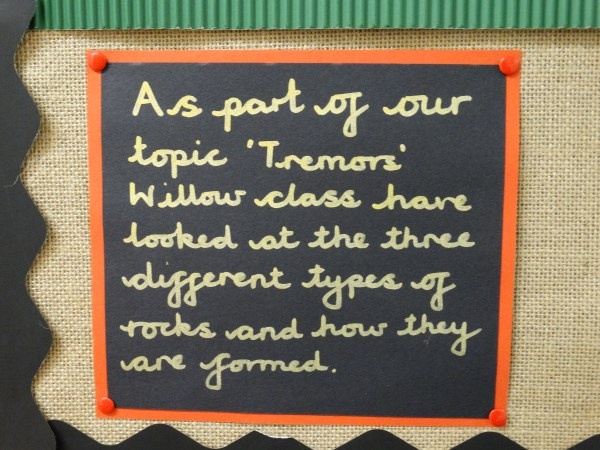 As part of our
topic 'Tremors'
Willow class have
looked at the three
different types of
rocks and how they
are formed.